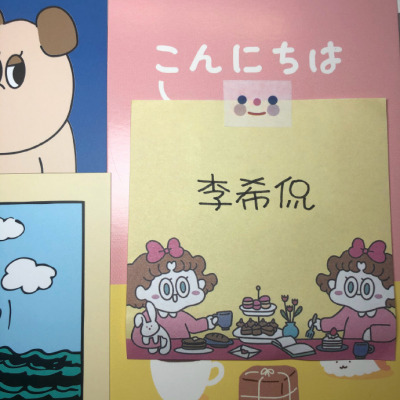 こんにちは
李希侃